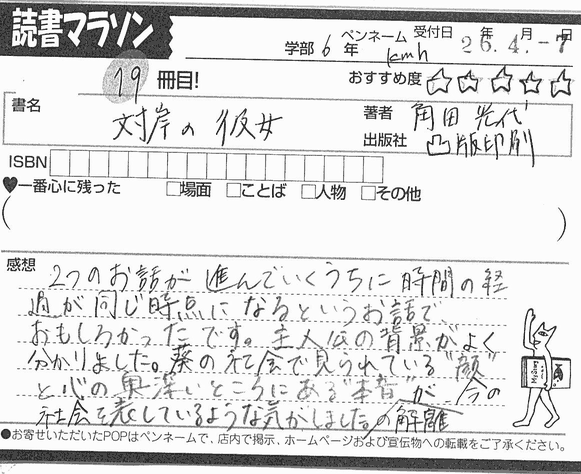 読書マラソン
学部 6 年 ペンネーム kmh 受付日 26年4.月-7日
19 冊目!
おすすめ度 ☆☆☆☆☆
書名 対岸の彼女
著者 角田光代
出版社 凸版印刷
ISBN
♥一番心に残った □場面 □ことば □人物 □その他
( )
感想 2つのお話が進んでいくうちに時間の経
過が同じ時点になるというお話で
おもしろかったです。主人公の背景がよく
分かりました。葵の社会で見られている"顔"
と心の奥深いところにある"本音"が今の
社会を表しているような気がしました。の解離
●お寄せいただいたPOPはペンネームで、店内で掲示、ホームページおよび宣伝物への転載をご了承ください。